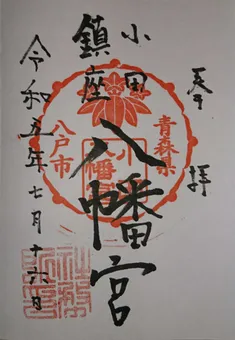 奉拝
小田
鎮座
八幡宮
令和五年七月十六日
青森県
八戸市
小田
八幡宮
社務所印